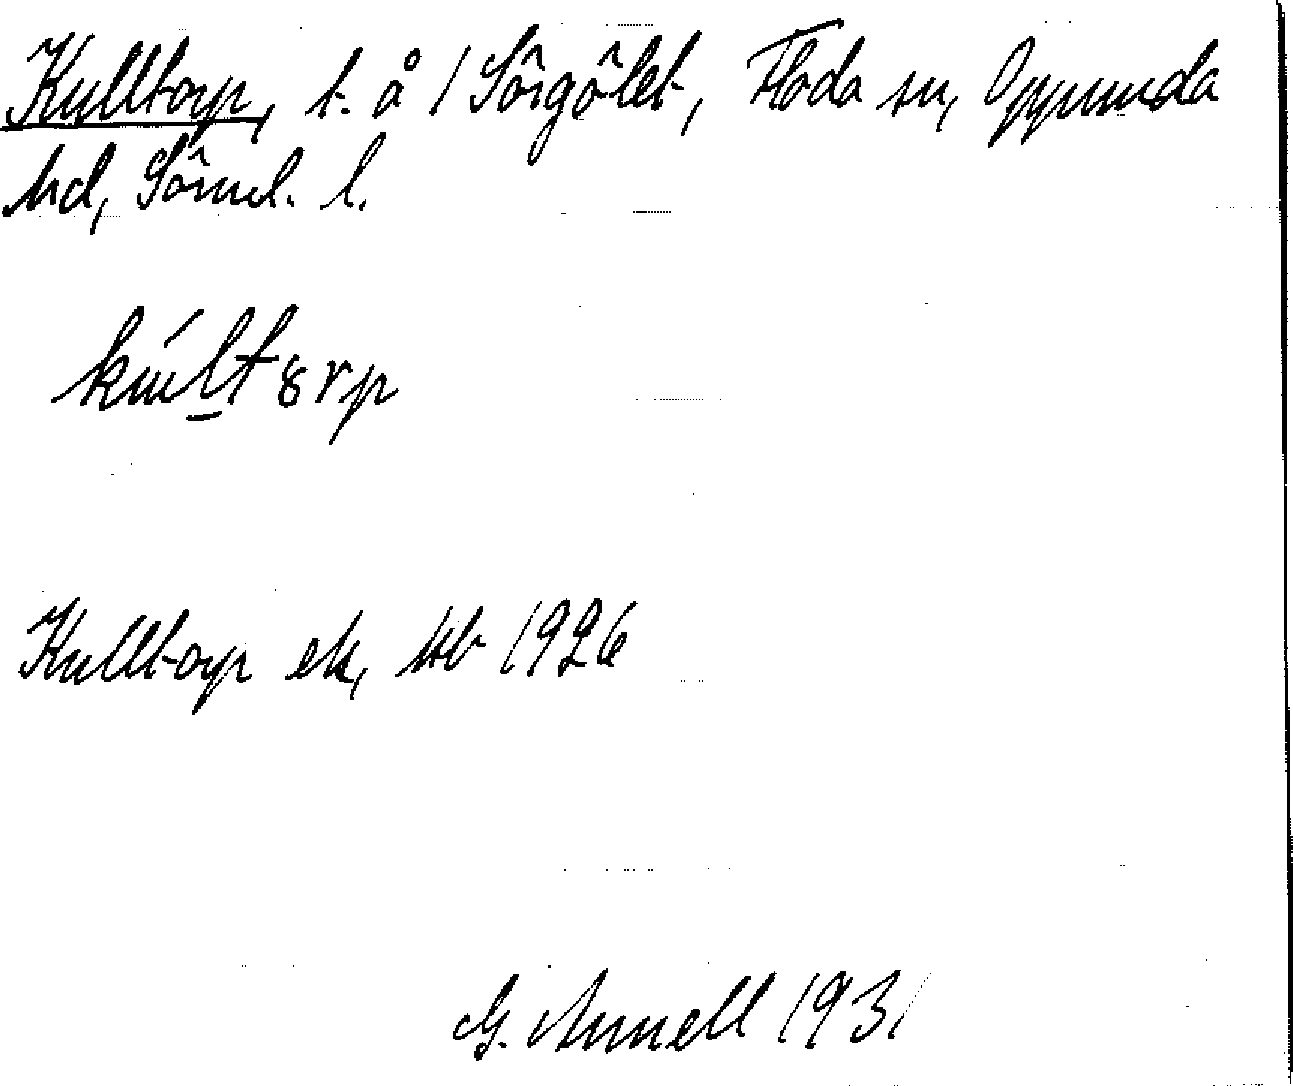 Kulltorp, t. å 1 Sörgölet, Floda sn, Oppunda
hd, Sörml. l.
kúltȣrp
Kulltorp ek, kb 1926
G. Annell 1931